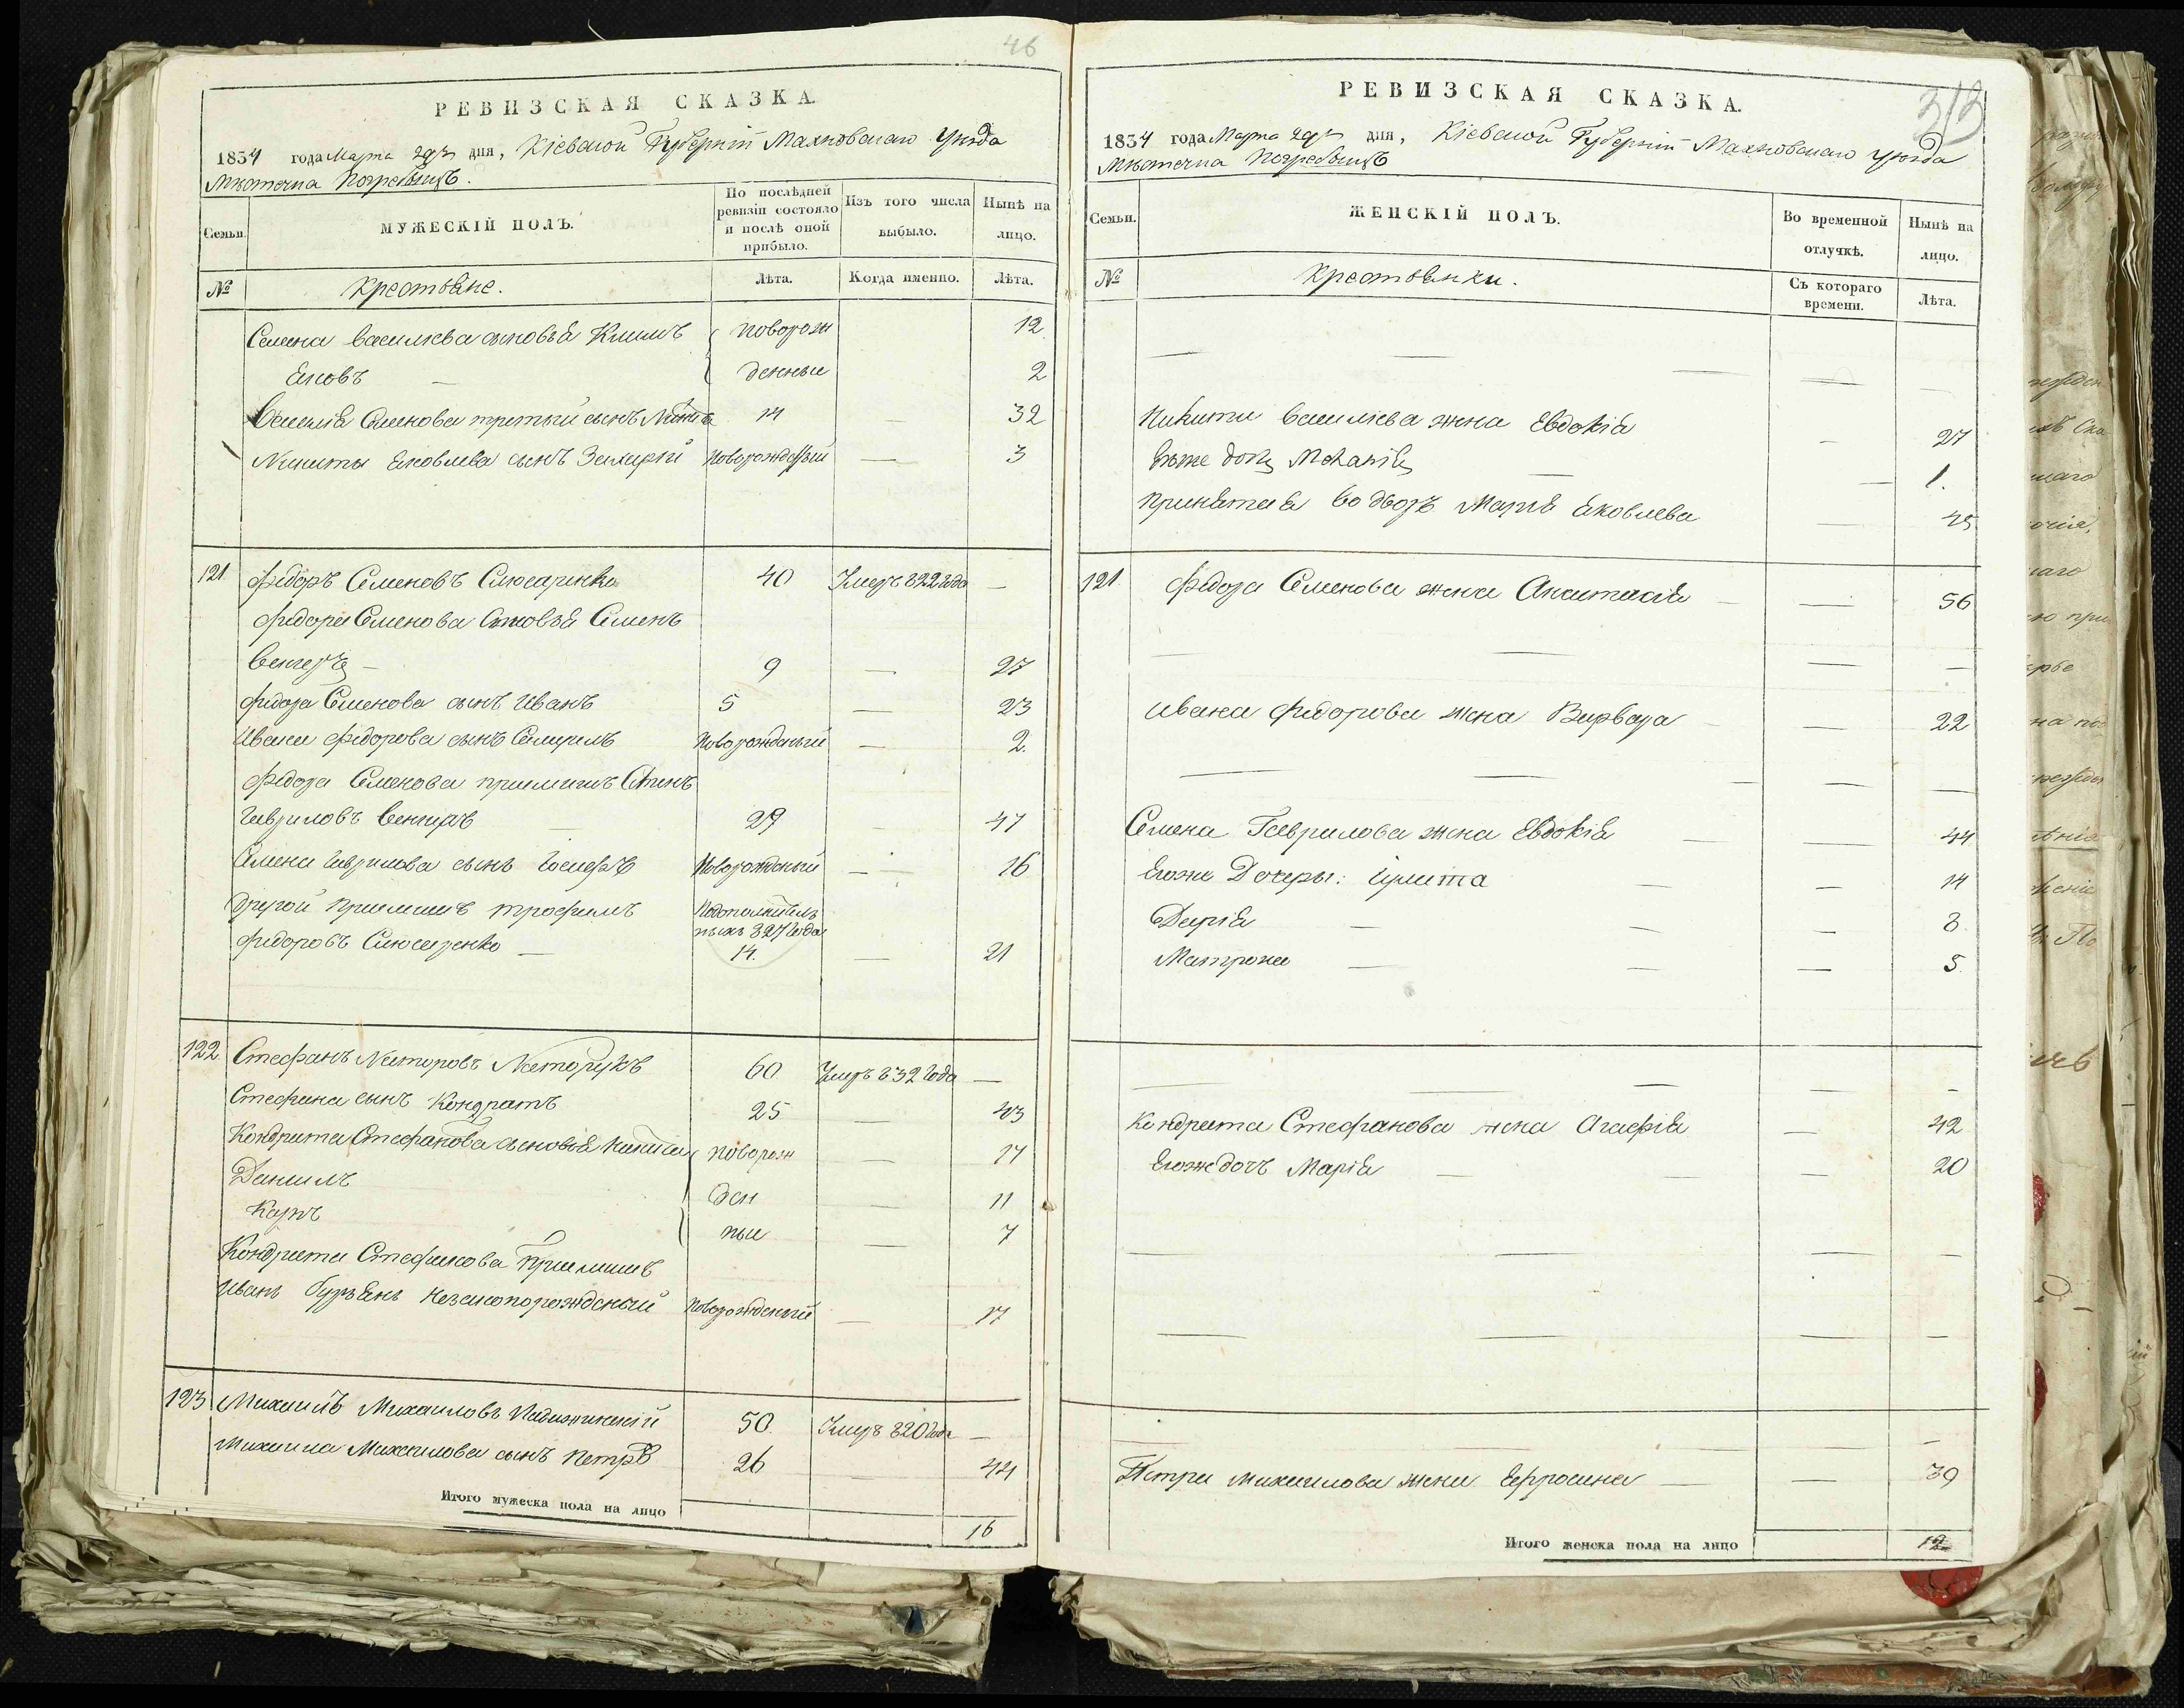 46
РЕВИЗСКАЯ СКАЗКА.
1834 года Марта 29го дня, Кіевской Губерніи Махновскаго уѣзда
Мѣстечка Погребыщъ.
Семьи.
МУЖЕСКІЙ ПОЛЪ.
По послѣдней ревизіи состояло и послѣ оной прибыло.
Изъ того числа выбыло.
Нынѣ на лицо.
№
Крестьяне.
Лѣта.
Когда именно.
Лѣта.
Семена Васильева сыновья Климъ новорож 12
Яковъ — денные 2
Василія Семенова третьій сынъ Никита 14 — 32
Никиты Яковлева сынъ Захарій Новорожденый — 3
121 Федоръ Семеновъ Слюсаренко 40 Умеръ 822 года —
Федора Семенова Сыновья Семенъ
Венгеръ — 9 — 27
Федора Семенова сынъ Иванъ 5 — 23
Ивана Федорова сынъ Самуилъ Новорожденый — 2.
Федора Семенова приемышъ Семенъ
Гавриловъ Венгеръ — 29 — 47
Семена Гаврилова сынъ Іосифъ Новорожденый — 16
другой приемышъ Трофимъ
Федоровъ Слюсаренко — 14. — 21
122 Стефанъ Несторовъ Несторукъ 60 Умеръ 832 года —
Стефана сынъ Кондратъ 25 — 43
Кондрата Стефанова сыновья Никита новорож — 17
Данилъ ден — 11
Карпъ ные — 7
Кондрата Стефанова приемышъ
Иванъ незаконорожденый Новорожденый — 17
123 Михаилъ Михаиловъ 50. Умеръ 820 года —
Михаила Михаилова сынъ Петръ 26 — 44
Итого мужеска пола на лицо 16
313
РЕВИЗСКАЯ СКАЗКА.
1834 года Марта 29го дня, Кіевской Губерніи Махновскаго уѣзда
Мѣстечка Погребыщъ
Семьи.
ЖЕНСКІЙ ПОЛЪ.
Во временной отлучкѣ.
Нынѣ на лицо.
№
Крестьянки.
Съ котораго времени.
Лѣта.
Никиты Васильева жена Евдокія — 27
Меланія — 1.
Принятая во дворъ Марія Яковлева — 45
121 Федора Семенова жена Анастасія — 56
Ивана Федорова жена Варвара — 22
Семена Гаврилова жена Евдокія — 44
Егоже Дочеры: Іулита — 14
Дарія — 8.
Матрона — 5.
Кондрата Стефанова жена Агафія — 42
Егожедочъ Марія — 20
Петра Михаилова жена Ефросина — 39
Итого женска пола на лицо 12